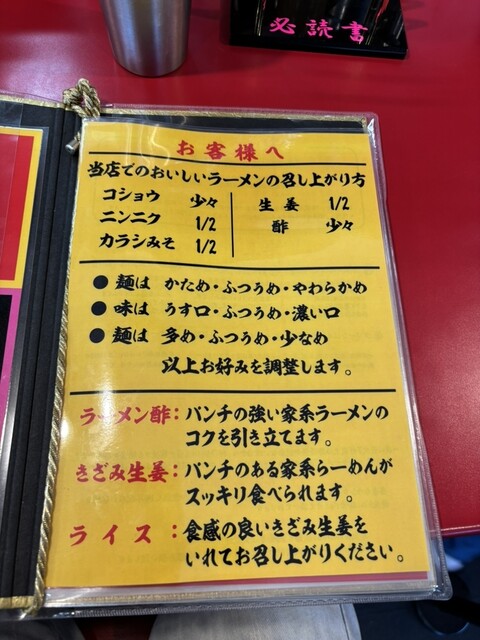 必読書
お客様へ
当店でのおいしいラーメンの召し上がり方
コショウ 少々
ニンニク 1/2
カラシみそ 1/2
生姜 1/2
酢 少々
● 麺は かため・ふつうめ・やわらかめ
● 味は うす口・ふつうめ・濃い口
● 麺は 多め・ふつうめ・少なめ
以上お好みを調整します。
ラーメン酢：パンチの強い家系ラーメンの
コクを引き立てます。
きざみ生姜：パンチのある家系らーめんが
スッキリ食べられます。
ライス：食感の良いきざみ生姜を
いれてお召し上がりください。